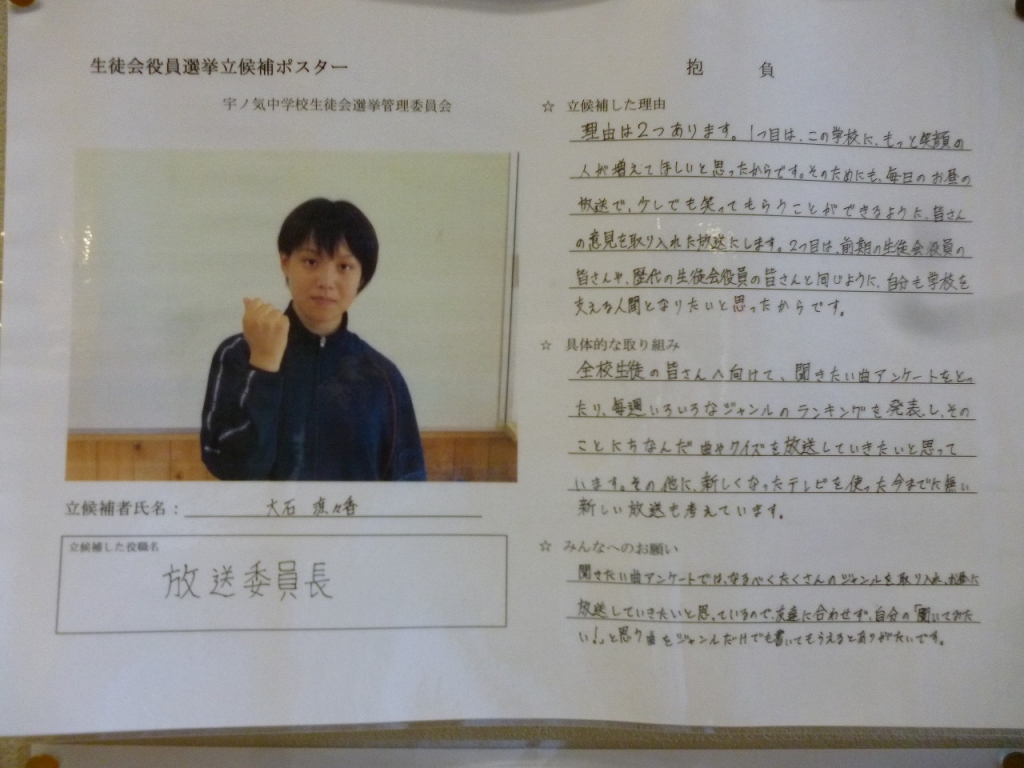 生徒会役員選挙立候補ポスター
宇ノ気中学校生徒会選挙管理委員会
立候補者氏名：大石 凛々香
立候補した役職名
放送委員長
抱 負
☆ 立候補した理由
理由は2つあります。1つ目は、この学校に、もっと笑顔の
人が増えてほしいと思ったからです。そのためにも、毎日のお昼の
放送で、少しでも笑ってもらうことができるように、皆さん
の意見を取り入れた放送にします。2つ目は、前期の生徒会役員の
皆さんや、歴代の生徒会役員の皆さんと同じように、自分も学校を
支える人間となりたいと思ったからです。
☆ 具体的な取り組み
全校生徒の皆さんへ向けて、聞きたい曲アンケートをとっ
たり、毎週いろいろなジャンルのランキングを発表し、その
ことにちなんだ曲やクイズを放送していきたいと思って
います。その他に、新しくなったテレビを使った今までに無い
新しい放送も考えています。
☆ みんなへのお願い
聞きたい曲アンケートでは、なるべくたくさんのジャンルを取り入れ、お昼に
放送していきたいと思っているので、友達に合わせず、自分の「聞いてみた
い！」と思う曲をジャンルだけでも書いてもらえるとありがたいです。